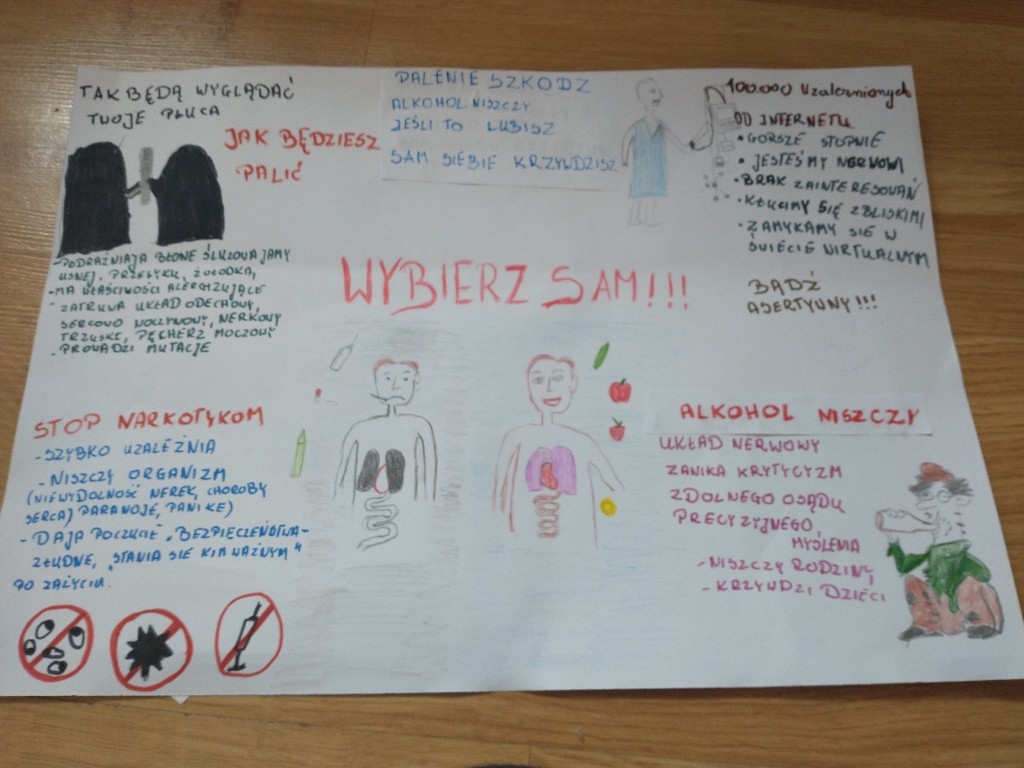 TAK BĘDĄ WYGLĄDAĆ
TWOJE PŁUCA
JAK BĘDZIESZ
PALIĆ
PALENIE SZKODZ
ALKOHOL NISZCZY
JEŚLI TO LUBISZ
SAM SIEBIE KRZYWDZISZ
100.000 Uzależnionych
OD INTERNETU
• GORSZE STOPNIE
• JESTEŚMY NERWOWI
• BRAK ZAINTERESOWAŃ
• KŁUCIMY SIĘ Z BLISKIMI
• ZAMYKAMY SIE W
ŚWIECIE WIRTUALNYM
BĄDŹ
ASERTYWNY!!!
- PODRAŻNIAJĄ BŁONE ŚLUZOWĄ JAMY
USNEJ, PRZEŁYKU, ŻOŁĄDKA,
- MA WŁAŚCIWOŚCI ALERGIZUJĄCE
- ZATRUWA UKŁAD ODECHOWY,
SERCOWO NOCZYNOWY, NERKOWY
TRZUSKI, PĘCHERZ MOCZOWY
- PROWADZI MUTACJE
WYBIERZ SAM!!!
STOP NARKOTYKOM
- SZYBKO UZALEŻNIA
- NISZCZY ORGANIZM
(NIEWYDOLNOŚĆ NEREK, CHOROBY
SERCA, PARANOJE, PANIKE)
- DAJĄ POCZUCIE „BEZPIECZEŃSTWA-
ZŁUDNE, „STANIA SIĘ KIM WAŻNYM"
PO ZAŻYCIU.
ALKOHOL NISZCZY
UKŁAD NERWOWY
ZANIKA KRYTYCYZM
ZDOLNEGO OSĄDU
PRECYZYJNEGO,
MYŚLENIA
- NISZCZY RODZINY
- KRZYWDZI DZIECI